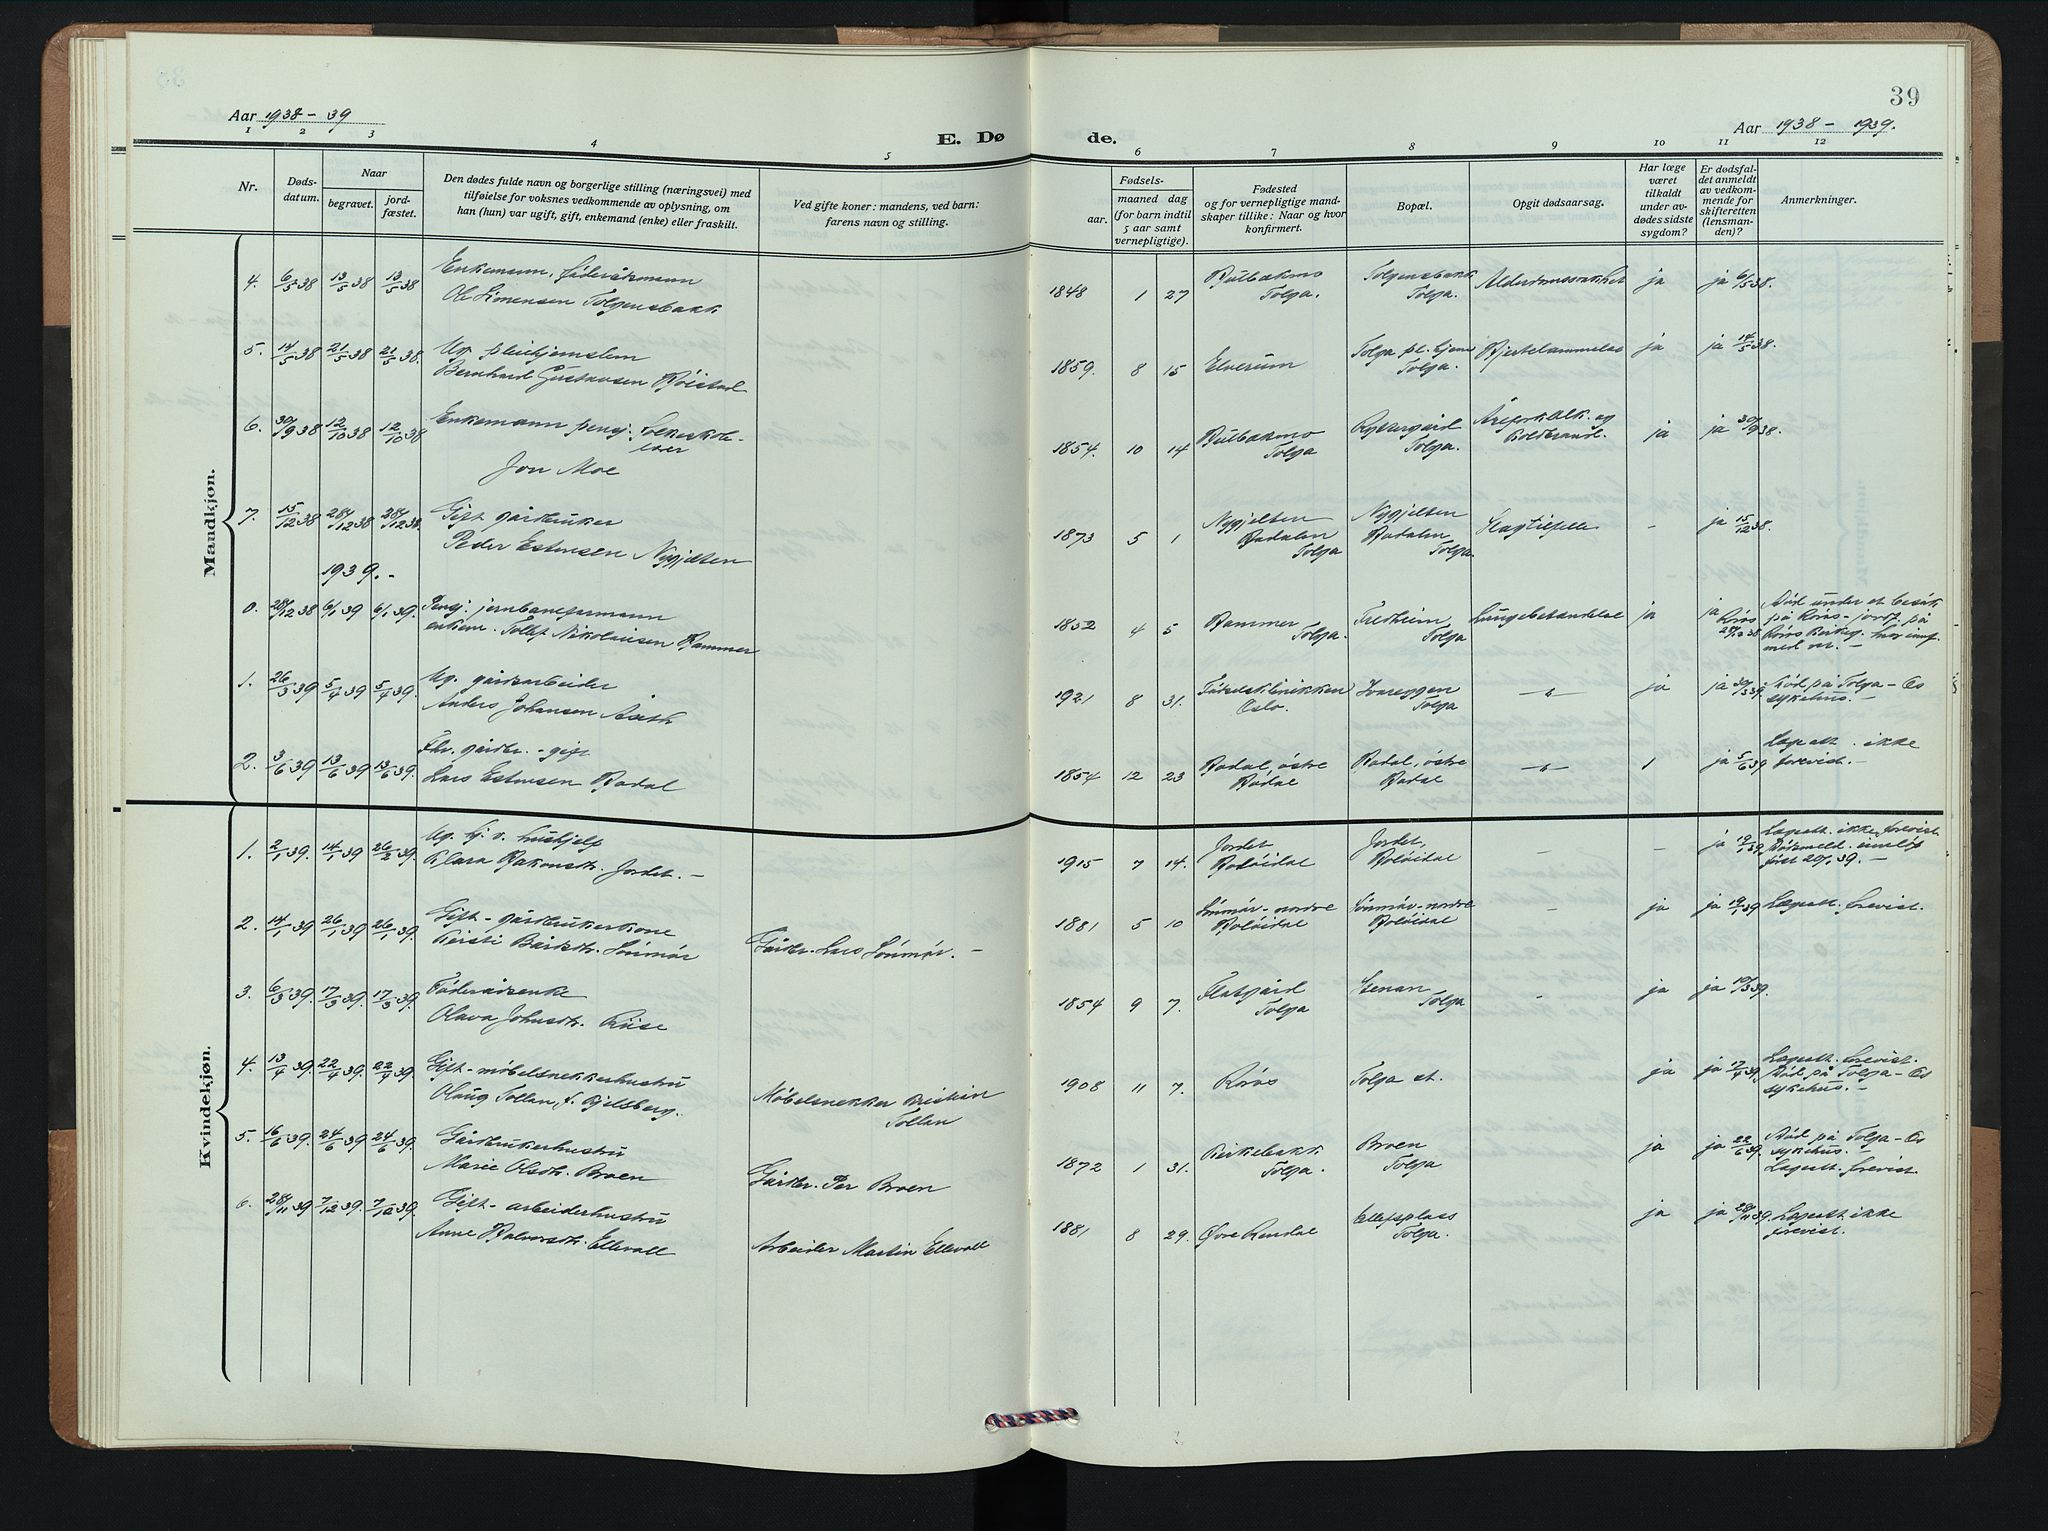 39
Aar 1938-39
E. Dø de.
Aar 1938-1939.
1 2 3 4 5 6 7 8 9 10 11 12
Nr.
Døds-
datum.
Naar
begravet.
jord-
fæstet.
Den dødes fulde navn og borgerlige stilling (næringsvei) med
tilføielse for voksnes vedkommende av oplysning, om
han (hun) var ugift, gift, enkemand (enke) eller fraskilt.
Ved gifte koner: mandens, ved barn:
farens navn og stilling.
Fødsels-
aar.
maaned dag
(for barn indtil
5 aar samt
vernepligtige).
Fødested
og for vernepligtige mand-
skaper tillike: Naar og hvor
konfirmert.
Bopæl.
Opgit dødsaarsag.
Har læge
været
tilkaldt
under av-
dødes sidste
sygdom?
Er dødsfal-
det anmeldt
av vedkom-
mende for
skifteretten
(lensman-
den)?
Anmerkninger.
Mandkjøn.
4. 6/5 38 13/5 38 13/5 38 Enkemann, føderåtsmann
Ole Simensen Tolgensbakk
1848 1 27 Tolga. Tolgensbakk
Tolga. ja ja 6/5 38.
5. 14/5 38 21/5 38 21/5 38. Ug. pleiehjemslem
Bernhard Gustavsen Røistad
1859. 8 15 Elverum Tolga pl. hjem
Tolga. ja ja 14/5 38.
6. 30/9 38 12/10 38 12/10 38 Enkemann pensj. folkeskole-
lærer
Jon Moe
1854. 10 14 Tolga Tolga. Åreforkalk. og
Koldbrand. ja ja 30/9 38.
7. 15/12 38 28/12 38 28/12 38. Gift gårdbruker
Peder Estensen Nygjelten
1873 5 1 Nygjelten
Hodalen
Tolga Nygjelten
Hodalen
Tolga. Slagtilfelle - ja 15/12 38.
1939.-
0. 28/12 38 6/1 39 6/1 39. Pensj. jernbaneformann
enkem. Tollef Nikolaisen Hammer
1852 4 5 Hammer
Tolga. Fredheim
Tolga ja ja
Røros
Død under et besøk
på Røros - jordf. på
1. 26/3 39 5/4 39 5/4 39. Ug. gårdsarbeider
Anders Johansen
1921 8 31. Fødselsklinikken
Oslo. Tolga ja ja 30/3 39. Død på Tolga-Os
sykehus.-
2. 3/6 39 13/6 39 13/6 39. Fhv. gårdbr. - gift
Lars Estensen Hodal
1854 12 23 Hodal, østre
Hodal Hodal, østre
Hodal 1 ja 5/6 39 Legeatt. ikke
forevist.-
Kvindekjøn.
1. 2/1 39. 14/1 39 26/2 39. Ug. hj. v. hushjelp
Klara Håkonsdtr. Jordet.-
1915 7 14. Jordet
Holøidal Jordet,
Holøidal - - ja 19/1 39 Legeatt. ikke forevist.
først 20/1 39.-
2. 14/1 39 26/1 39 26/1 39. Gift - gårdbrukerkone
Kirsti Bårdsdtr. Sønmør
Gårdbr. Lars Sønmør.-
1881 5 10 Sønmør-nordre
Holøidal Sønmør-nordre
Holøidal - ja ja 19/1 39 Legeatt. forevist.
3. 6/3 39. 17/3 39. 17/3 39. Føderådsenke
Olava Johnsdtr. Riise
1854 9 7. Flatgård
Tolga Stenan
Tolga - ja ja 10/3 39.
4. 13/4 39. 22/4 39. 22/4 39. Gift - møbelsnekkerhustru
Olaug Tollan, f. Hjelsberg.
Møbelsnekker Kristian
Tollan
1908 11 7. Røros Tolga st. ja ja 17/4 39. Legeatt. forevist.
Død på Tolga-Os
sykehus.-
5. 16/6 39. 24/6 39. 24/6 39. Gårdbrukerhustru
Marie Olsdtr. Broen
Gårdbr. Per Broen
1872 1 31. Kirkebakk
Tolga. Broen
Tolga ja ja 22/6 39. Død på Tolga-Os
sykehus.-
Legeatt. forevist.
6. 28/11 39 7/12 39. 7/12 39. Gift - arbeiderhustru
Anne Halvorsdtr. Ellevoll
Arbeider Martin Ellevoll
1881 8 29. Øvre Rendal
Tolga. ja ja 28/11 39. Legeatt. ikke
forevist.